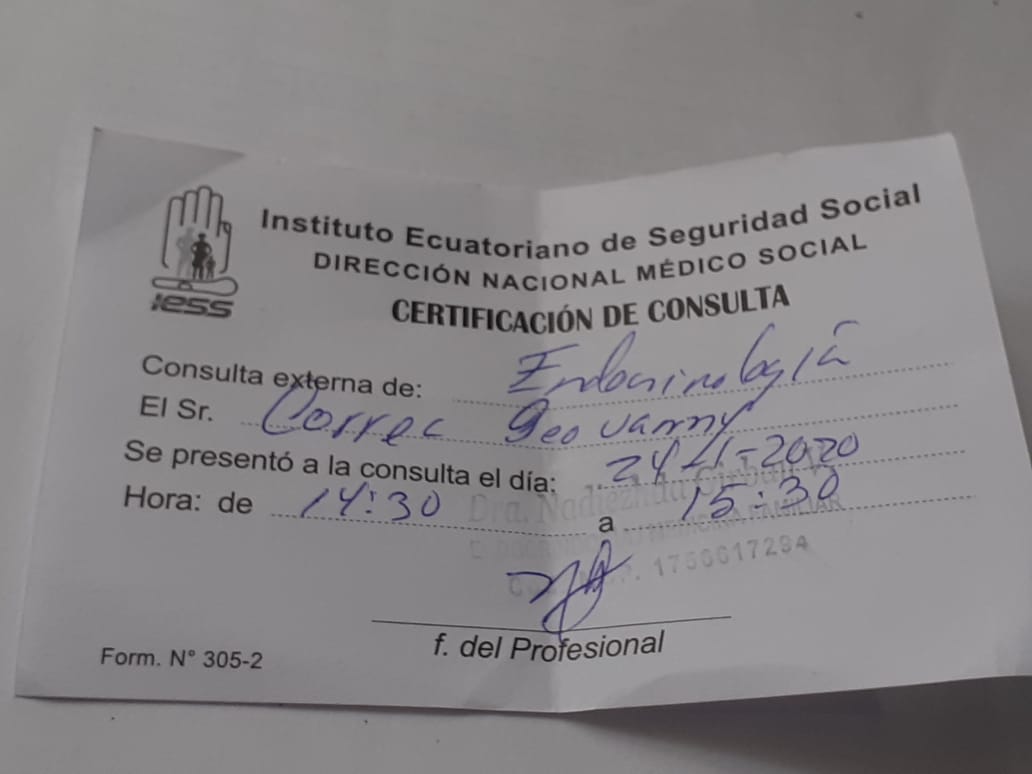 Instituto Ecuatoriano de Seguridad Social
DIRECCIÓN NACIONAL MÉDICO SOCIAL
CERTIFICACIÓN DE CONSULTA
iess
Consulta externa de: Endocrinología
El Sr. Correa Geovanny
Se presentó a la consulta el día: 24-11-2020
Hora: de 14:30 a 15:30
Dra. Nadiezhda
MEDICINA FAMILIAR
f. del Profesional
Form. N° 305-2